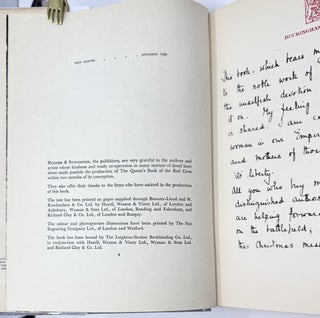 FIRST PRINTED . . . . NOVEMBER 1939
HODDER & STOUGHTON, the publishers, are very grateful to the authors and
artists whose kindness and ready co-operation in many matters of detail have
alone made possible the production of The Queen's Book of the Red Cross
within two months of its conception.
They also offer their thanks to the firms who have assisted in the production
of this book.
The text has been printed on paper supplied through Bowater-Lloyd and W.
Rowlandson & Co. Ltd. by Hazell, Watson & Viney Ltd., of London and
Aylesbury, Wyman & Sons Ltd., of London, Reading and Fakenham, and
Richard Clay & Co. Ltd., of London and Bungay.
The colour and photogravure illustrations have been printed by The Sun
Engraving Company Ltd., of London and Watford.
The book has been bound by The Leighton-Straker Bookbinding Co. Ltd.,
in conjunction with Hazell, Watson & Viney Ltd., Wyman & Sons Ltd.
and Richard Clay & Co. Ltd.
4
BUCKINGHAM
This book, which bears m
to the noble work of
the unselfish devotion
it on. My feeling
is shared, I am co
women in our Empire
and mothers of those
its liberty.
All you who buy m
distinguished authors
are helping forward
on the battlefield;
this Christmas mess